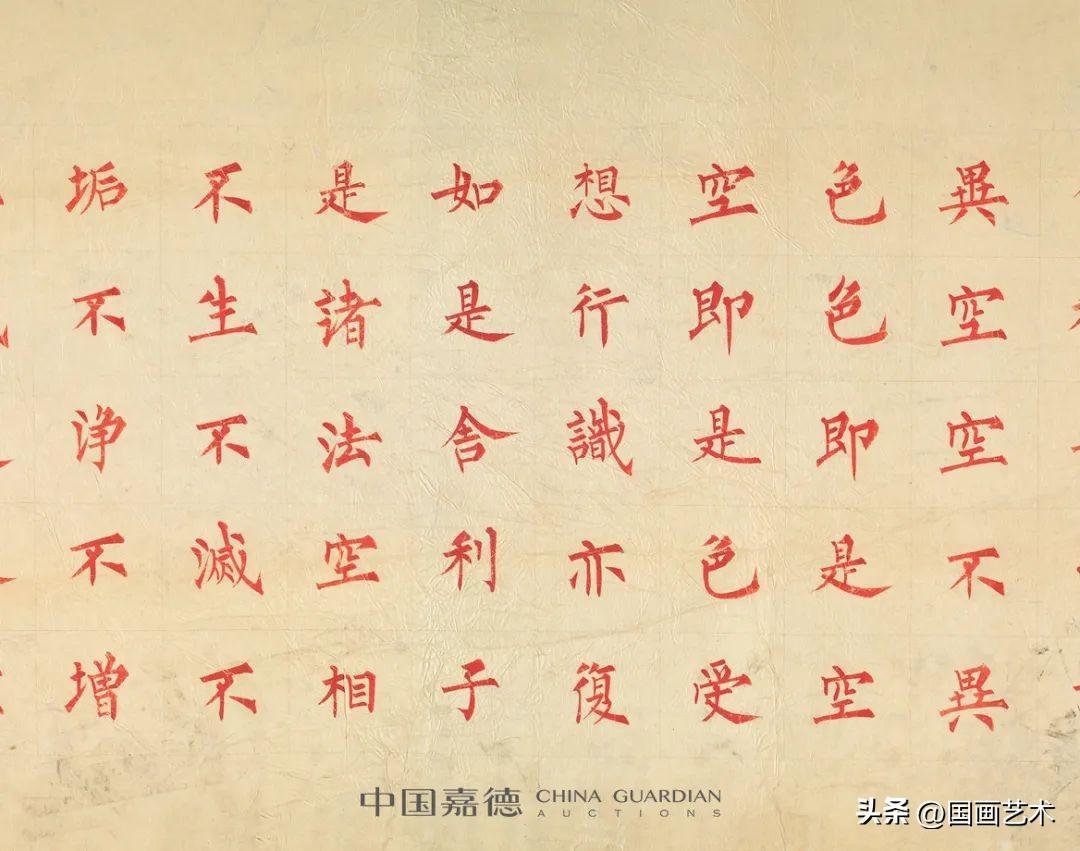 異空空不異
色色即是空
空即是色受
想行識亦復
如是舍利子
是諸法空相
不生不滅不
垢不淨不增
中国嘉德 CHINA GUARDIAN
AUCTIONS
头条 @国画艺术